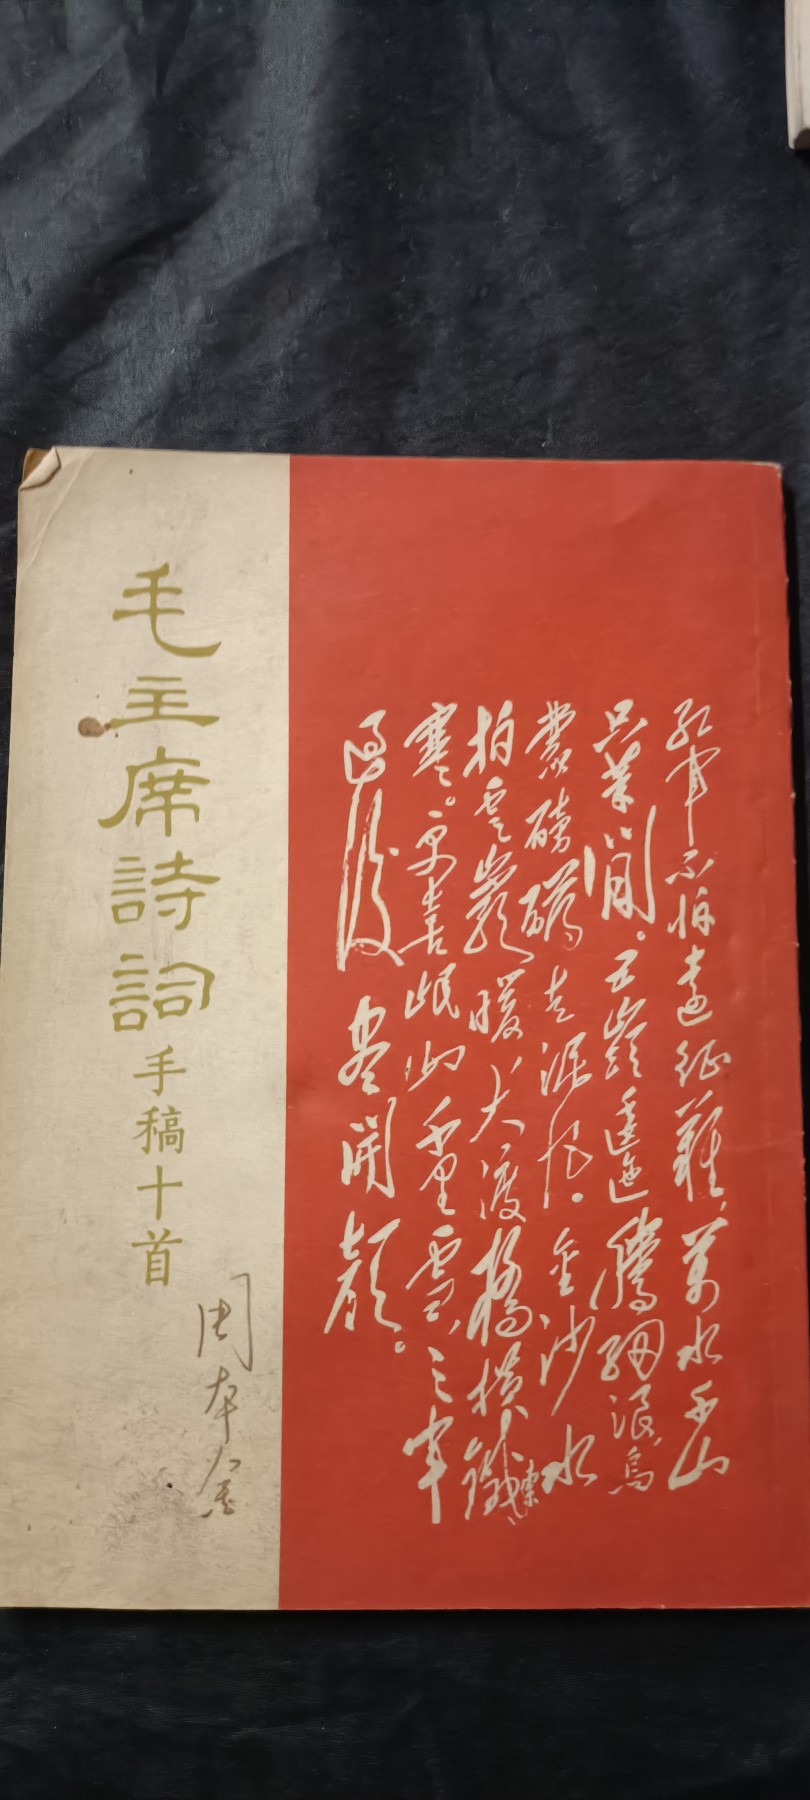 红军不怕遠征難，萬水千山
只等閒。五嶺逶迤騰細浪，烏
蒙磅礴走泥丸。金沙水
拍雲巖暖，大渡橋橫鐵索
寒。更喜岷山千里雪，三軍
過後盡開顏。
毛主席詩詞手稿十首
周本金